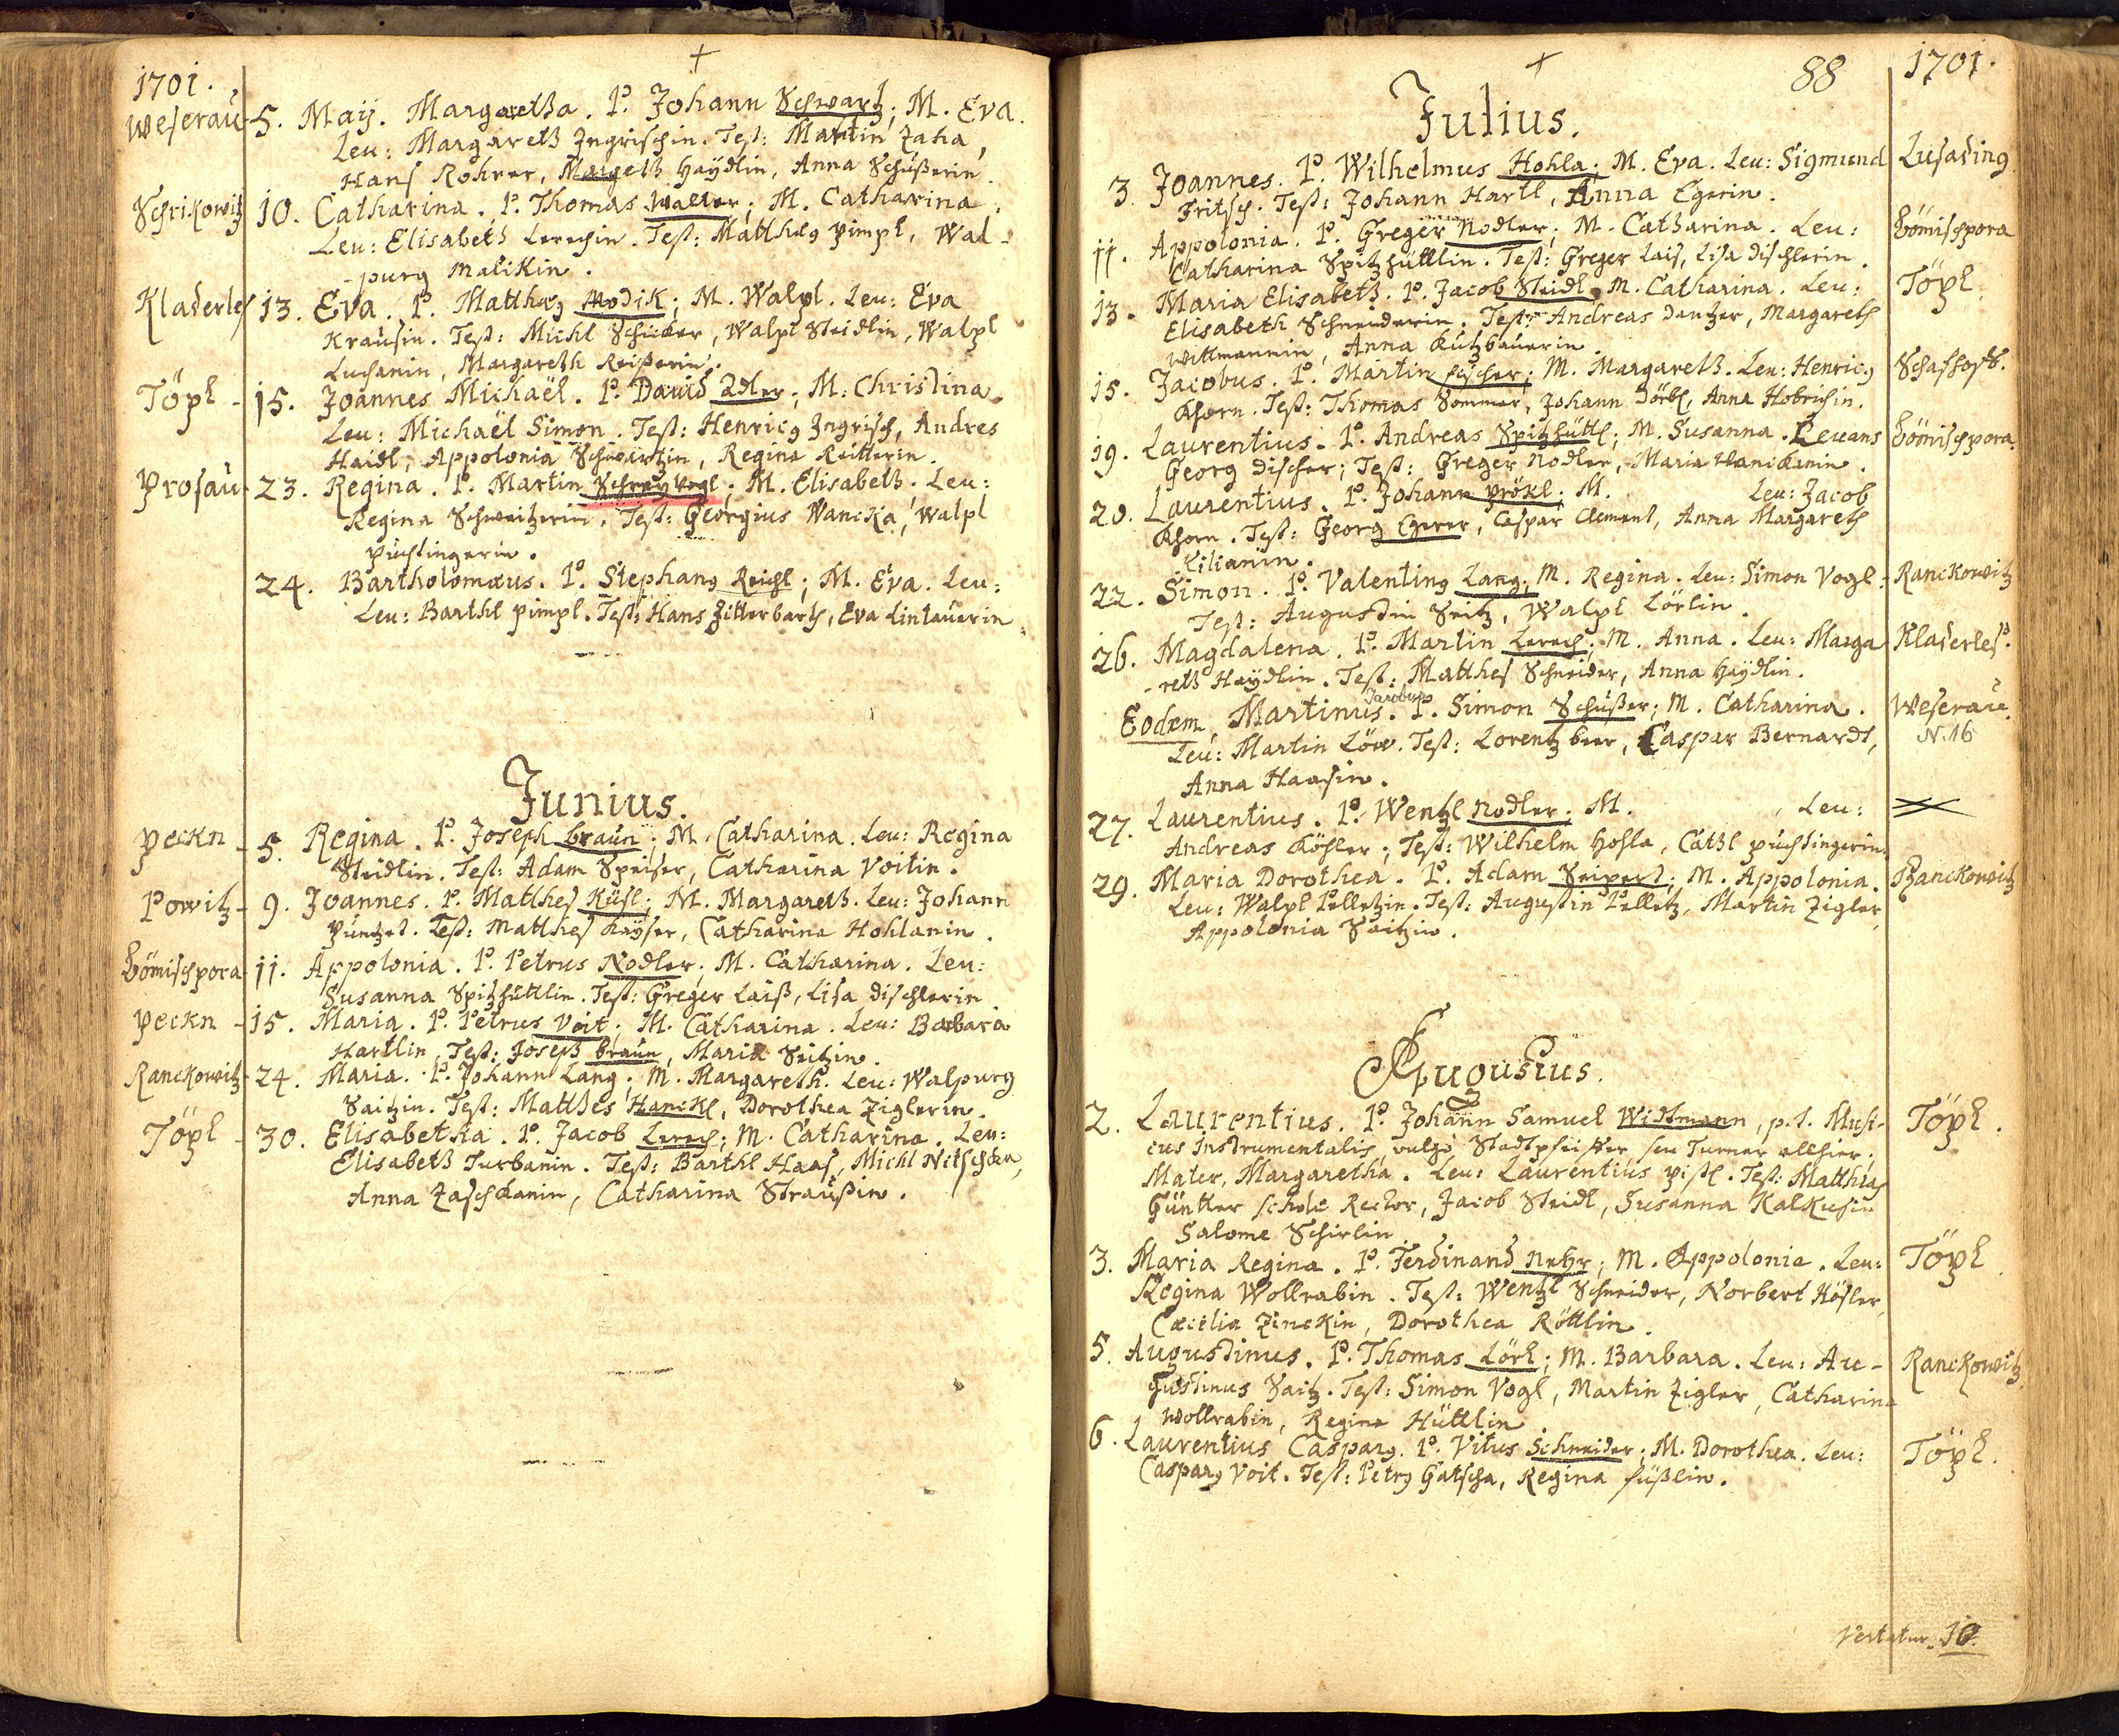 1701.
Weserau 5. Maij. Margaretha. P. Johann Schwartz; M. Eva.
Leu: Margareth Ingrischin. Test: Martin Zaha,
Hans Rohrer, Margeth Haÿdlin, Anna Schußerin.
Schrikowitz 10. Catharina. P. Thomas Walter; M. Catharina.
Leu: Elisabeth Lerchin. Test: Matthæg pimpl, Wal-
-purg Malikin.
Kladerles 13. Eva. P. Matthæg Modik; M. Walpl. Leu: Eva
Krausin. Test: Michl Schuker, Walpl Steidlin, Walpl
Luchanin, Margareth Reißerin.
Töpl - 15. Joannes Michaël. P. David Adler; M: Christina.
Leu: Michaël Simon. Test: Henricg Ingrisch, Andres
Haidl, Appolonia Schwartzin, Regina Reitterin.
Prosau - 23. Regina. P. Martin Schreyvogl; M. Elisabeth. Leu:
Regina Schweitzerin. Test: Georgius Wancka, Walpl
puchtingerin.
24. Bartholomæus. P. Stephang Reichl; M. Eva. Leu:
Leu: Barthl pimpl. Test: Hans Zitterbarth, Eva Lintauerin
Junius.
Peckn - 5. Regina. P. Joseph braun; M. Catharina. Leu: Regina
Steidlin. Test: Adam Speiser, Catharina Voitin.
Powitz - 9. Joannes. P. Matthes Küsl; M. Margareth. Leu: Johann
Püntzel. Test: Matthes Kayser, Catharina Hohlanin.
Bömischpora 11. Appolonia. P. Petrus Nodler; M. Catharina. Leu:
Susanna Spitzhüttlin. Test: Greger Laiß, Lisa dischlerin.
Peckn - 15. Maria. P. Petrus Voit; M. Catharina. Leu: Barbara
Hartlin, Test: Joseph braun, Maria Seitzin.
Ranckowitz 24. Maria. P. Johann Lang; M. Margareth. Leu: Walpurg
Saitzin. Test: Matthes Hanckl, Dorothea Ziglerin.
Töpl - 30. Elisabetha. P. Jacob Lerch; M. Catharina. Leu:
Elisabeth Turbanin. Test: Barthl Haas, Michl Nitschka,
Anna Zaschkanin, Catharina Straußin.
88 1701.
Julius.
3. Joannes. P. Wilhelmus Hohla; M. Eva. Leu: Sigmund Lusading
Fritsch. Test: Johann Hartl, Anna Egerin.
11. Appolonia. P. Greger Nodler; M. Catharina. Leu: Bömischpora
Catharina Spitzhüttlin. Test: Greger Lais, Lisa dischlerin.
13. Maria Elisabeth. P. Jacob Steidl; M. Catharina. Leu: Töpl.
Elisabeth Schneiderin. Test: Andreas dantzer, Margareth
Wittmannin, Anna Kutzbauerin
15. Jacobus. P. Martin fischer; M. Margareth. Leu: Henricg Schafhoff.
Khorn. Test: Thomas Sommer, Johann dörbl, Anna Hobrichin.
19. Laurentius. P. Andreas Spitzhüttl; M. Susanna. Levans Bömischpora
Georg discher; Test: Greger Nodler, Maria Hanikanin.
20. Laurentius. P. Johann Prökl; M. Leu: Jacob
Khorn. Test: Georg Egerer, Caspar Clement, Anna Margareth
Kilianin.
22. Simon. P. Valenting Lang; M. Regina. Leu: Simon Vogl. Ranckowitz
Test: Augustin Seitz, Walpl Lörlin.
26. Magdalena. P. Martin Lerch; M. Anna. Leu: Marga Kladerles.
-reth Haydlin. Test: Matthes Schneider, Anna Haÿdlin.
Jacobus
Eodem, Martinus. P. Simon Schußer; M. Catharina. Weserau.
Leu: Martin Löw. Test: Lorentz beer, Caspar Bernardt, N. 16
Anna Haasin.
27. Laurentius. P. Wentzl Nodler; M. Leu:
Andreas Köhler; Test: Wilhelm Hohla, Cathl puchtingerin.
29. Maria Dorothea. P. Adam Seipert; M. Appolonia. Ranckowitz
Leu: Walpl Pelletzin. Test: Augustin Pelletz, Martin Zigler,
Appolonia Saitzin.
Augustus.
2. Laurentius. P. Johann Samuel Widtmann, p.t. Musi- Töpl.
cus Instrumentalis, vulgò Stadtpfeiffer seu Turner allhier.
Mater, Margaretha. Leu: Laurentius pistl. Test: Matthias
Güntter scholæ Rector, Jacob Steidl, Susanna Kalkusin
Salome Schirlin.
3. Maria Regina. P. Ferdinand Nehr; M. Appolonia. Leu: Töpl
Regina Wollrabin. Test: Wentzl Schneider, Norbert Hösler,
Cæcilia Zinckin, Dorothea Röttlin.
5. Augustinus. P. Thomas Lörl; M. Barbara. Leu: Au- Ranckowitz
gustinus Saitz. Test: Simon Vogl, Martin Zigler, Catharina
Wollrabin, Regina Hüttlin.
6. Laurentius Casparg. P. Vitus Schneider; M. Dorothea. Leu: Töpl.
Casparg Voit. Test: Petrg Gatscha, Regina füßlin.
Vertatur. 10.